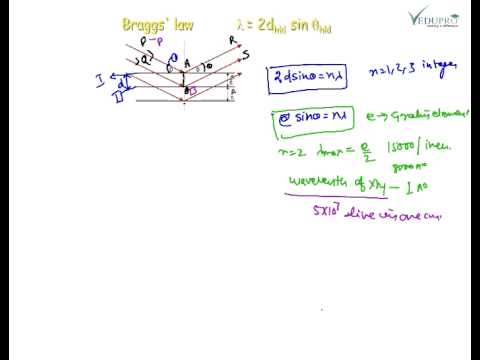 VEDUPRO
Braggs` law λ = 2d_hkl sin θ_hkl
P - P
R
S
Q
A
θ
θ
I
d
II
B
2dsinθ = nλ n=1,2,3 integer
e sinθ = nλ e → Grating element
n=2 λmax = e/2 15000/inch
8000 A°
wavelength of X ray - 1 A°
5×10⁷ line in one cm